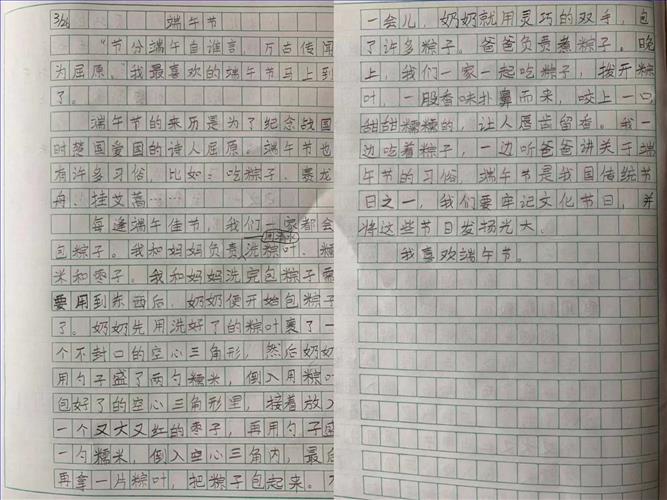 3/26 端午节
"节分端午自谁言，万古传闻
为屈原。"我最喜欢的端午节马上到
了。
端午节的来历是为了纪念战国
时楚国爱国的诗人屈原。端午节也
有许多习俗，比如：吃粽子、赛龙
舟、挂艾蒿……
每逢端午佳节，我们一家都会
包粽子。我和妈妈负责用清水洗粽叶、糯
米和枣子。我和妈妈洗完包粽子需
要用到东西后，奶奶便开始包粽子
了。奶奶先用洗好了的粽叶裹了一
个不封口的空心三角形，然后奶奶
用勺子盛了两勺糯米，倒入用粽叶
包好了的空心三角形里，接着放入
一个又大又红的枣子，再用勺子盛
一勺糯米，倒入空心三角内，最后
再拿一片粽叶，把粽子包起来。不
一会儿，奶奶就用灵巧的双手，包
了许多粽子。爸爸负责煮粽子。晚
上，我们一家一起吃粽子，拨开粽
叶，一股香味扑鼻而来，咬上一口，
甜甜糯糯的，让人唇齿留香。我一
边吃着粽子，一边听爸爸讲关于端
午节的习俗。端午节是我国传统节
日之一，我们要牢记文化节日，并
将这些节日发扬光大。
我喜欢端午节。